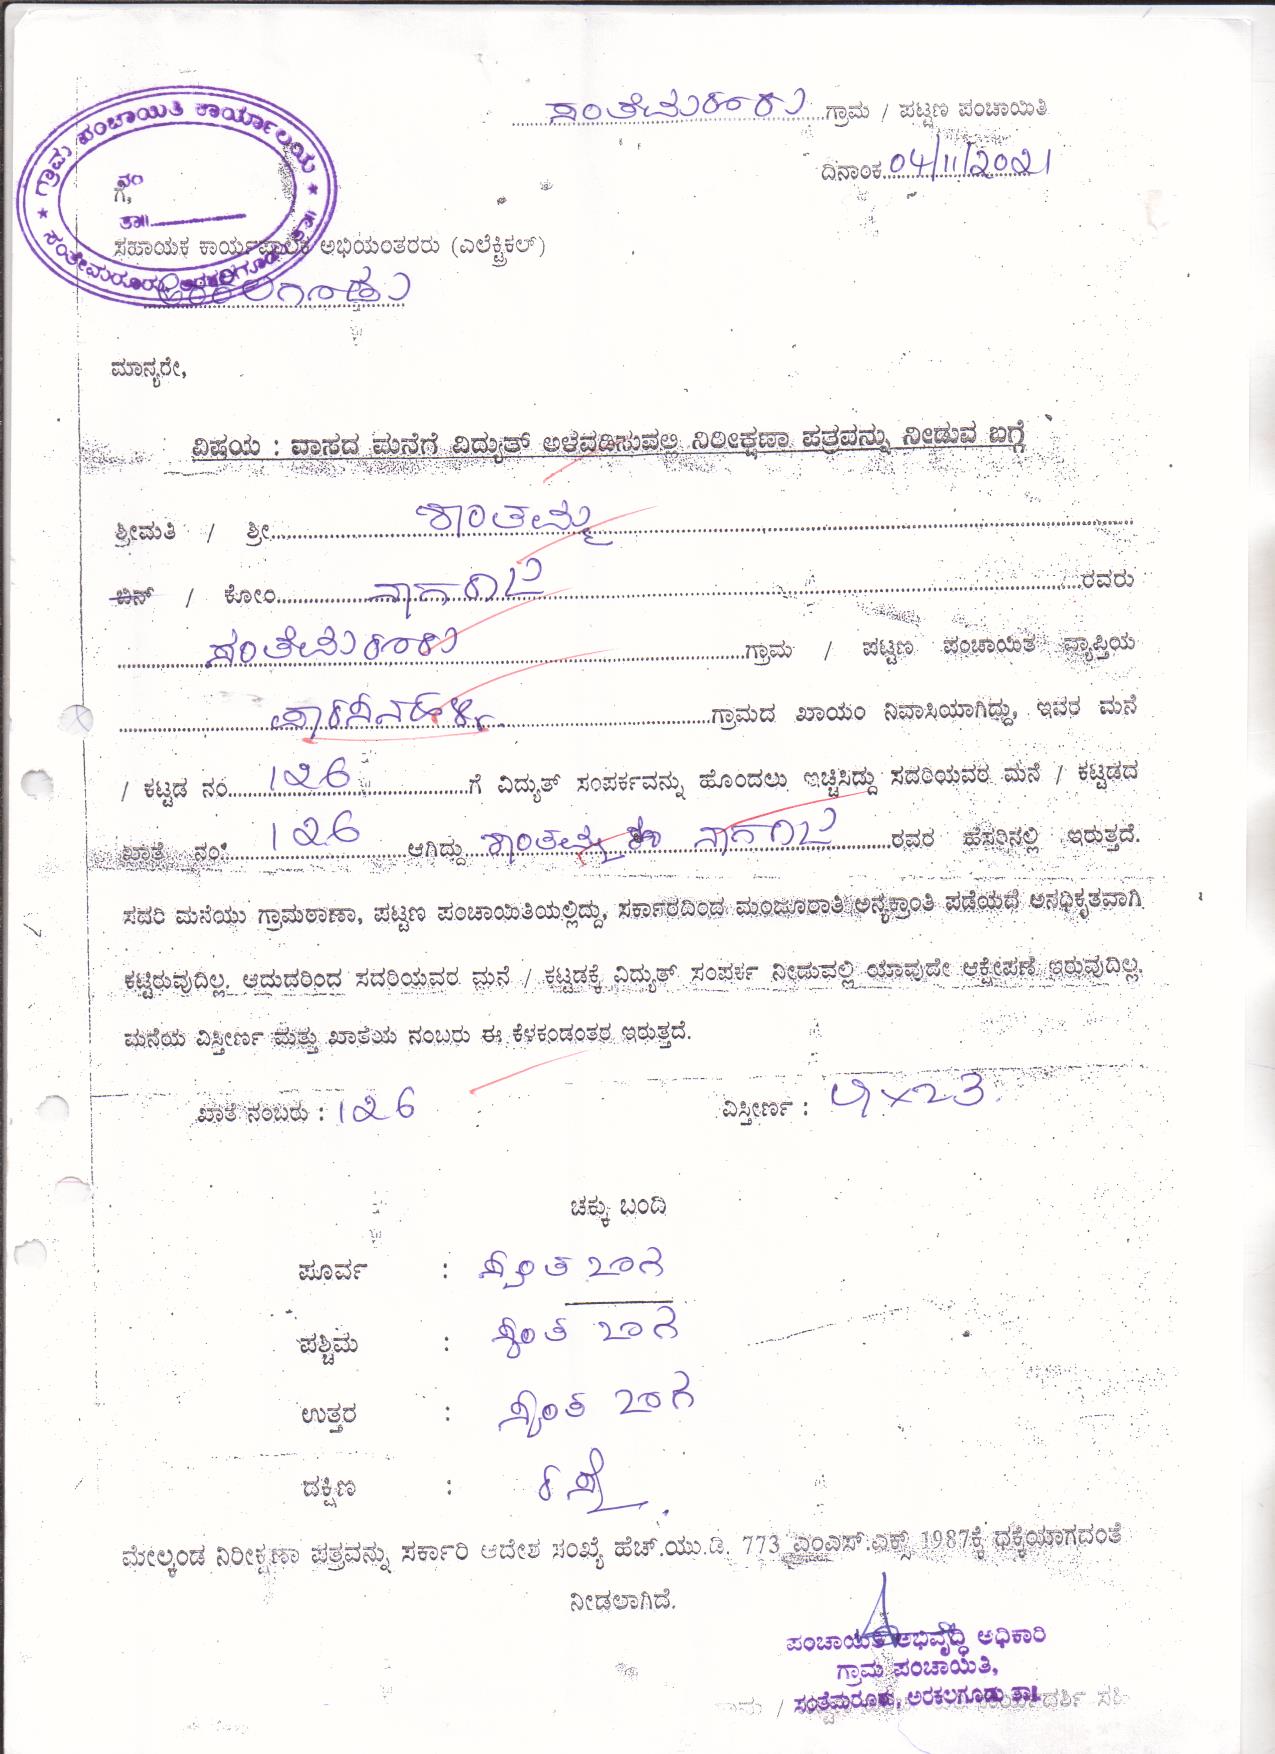 ಸಂತೇಮರೂರು ಗ್ರಾಮ / ಪಟ್ಟಣ ಪಂಚಾಯಿತಿ
ದಿನಾಂಕ 04/11/2021
★ ಗ್ರಾಮ ಪಂಚಾಯಿತಿ ಕಾರ್ಯಾಲಯ ★
ನಂ
ಗೆ,
ತಾ॥
ಸಹಾಯಕ ಕಾರ್ಯಪಾಲಕ ಅಭಿಯಂತರರು (ಎಲೆಕ್ಟ್ರಿಕಲ್)
ಅರಕಲಗೂಡು
ಮಾನ್ಯರೇ,
ವಿಷಯ : ವಾಸದ ಮನೆಗೆ ವಿದ್ಯುತ್ ಅಳವಡಿಸುವಲ್ಲಿ ನಿರೀಕ್ಷಣಾ ಪತ್ರವನ್ನು ನೀಡುವ ಬಗ್ಗೆ
ಶ್ರೀಮತಿ / ಶ್ರೀ ಶಾಂತಮ್ಮ
ಬಿನ್ / ಕೋಂ ನಾಗರಾಜ ರವರು
ಸಂತೇಮರೂರು ಗ್ರಾಮ / ಪಟ್ಟಣ ಪಂಚಾಯಿತ ವ್ಯಾಪ್ತಿಯ
ಗ್ರಾಮದ ಖಾಯಂ ನಿವಾಸಿಯಾಗಿದ್ದು, ಇವರ ಮನೆ
/ ಕಟ್ಟಡ ನಂ 126 ಗೆ ವಿದ್ಯುತ್ ಸಂಪರ್ಕವನ್ನು ಹೊಂದಲು ಇಚ್ಚಿಸಿದ್ದು ಸದರಿಯವರ ಮನೆ / ಕಟ್ಟಡದ
ಖಾತೆ ನಂ 126 ಆಗಿದ್ದು ಶಾಂತಮ್ಮ ಕೋ ನಾಗರಾಜ ರವರ ಹೆಸರಿನಲ್ಲಿ ಇರುತ್ತದೆ.
ಸದರಿ ಮನೆಯು ಗ್ರಾಮಠಾಣಾ, ಪಟ್ಟಣ ಪಂಚಾಯಿತಿಯಲ್ಲಿದ್ದು, ಸರ್ಕಾರದಿಂದ ಮಂಜೂರಾತಿ ಅನ್ಯಕ್ರಾಂತಿ ಪಡೆಯದೆ ಅನಧಿಕೃತವಾಗಿ
ಕಟ್ಟಿರುವುದಿಲ್ಲ. ಆದುದರಿಂದ ಸದರಿಯವರ ಮನೆ / ಕಟ್ಟಡಕ್ಕೆ ವಿದ್ಯುತ್ ಸಂಪರ್ಕ ನೀಡುವಲ್ಲಿ ಯಾವುದೇ ಆಕ್ಷೇಪಣೆ ಇರುವುದಿಲ್ಲ.
ಮನೆಯ ವಿಸ್ತೀರ್ಣ ಮತ್ತು ಖಾತೆಯ ನಂಬರು ಈ ಕೆಳಕಂಡಂತರ ಇರುತ್ತದೆ.
ಖಾತೆ ನಂಬರು : 126 ವಿಸ್ತೀರ್ಣ :
ಚಕ್ಕು ಬಂದಿ
ಪೂರ್ವ : ಸ್ವಂತ ಜಾಗ
ಪಶ್ಚಿಮ : ಸ್ವಂತ ಜಾಗ
ಉತ್ತರ : ಸ್ವಂತ ಜಾಗ
ದಕ್ಷಿಣ : ರಸ್ತೆ
ಮೇಲ್ಕಂಡ ನಿರೀಕ್ಷಣಾ ಪತ್ರವನ್ನು ಸರ್ಕಾರಿ ಆದೇಶ ಸಂಖ್ಯೆ ಹೆಚ್.ಯು.ಡಿ. 773 ಎಂಎಸ್.ಎಕ್ಸ್ 1987ಕ್ಕೆ ಧಕ್ಕೆಯಾಗದಂತೆ
ನೀಡಲಾಗಿದೆ.
ಪಂಚಾಯತಿ ಅಭಿವೃದ್ಧಿ ಅಧಿಕಾರಿ
ಗ್ರಾಮ ಪಂಚಾಯಿತಿ,
ಸಂತೆಮರೂರು, ಅರಕಲಗೂಡು ತಾ॥